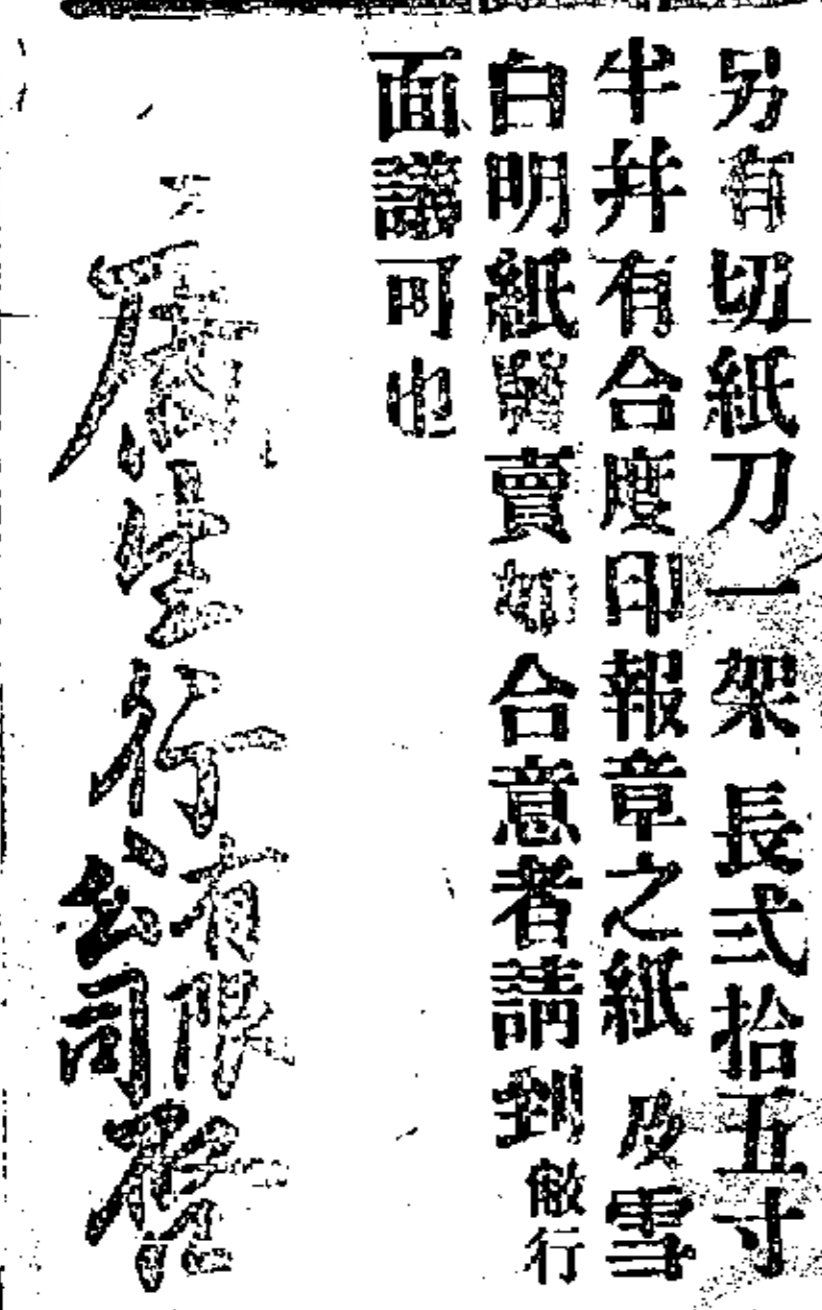 另有切紙刀一架長弍拾五寸
半并有合度印報章之紙及雪
白明紙發賣如合意者請到敝行
面議可也
廣生行有限公司啓